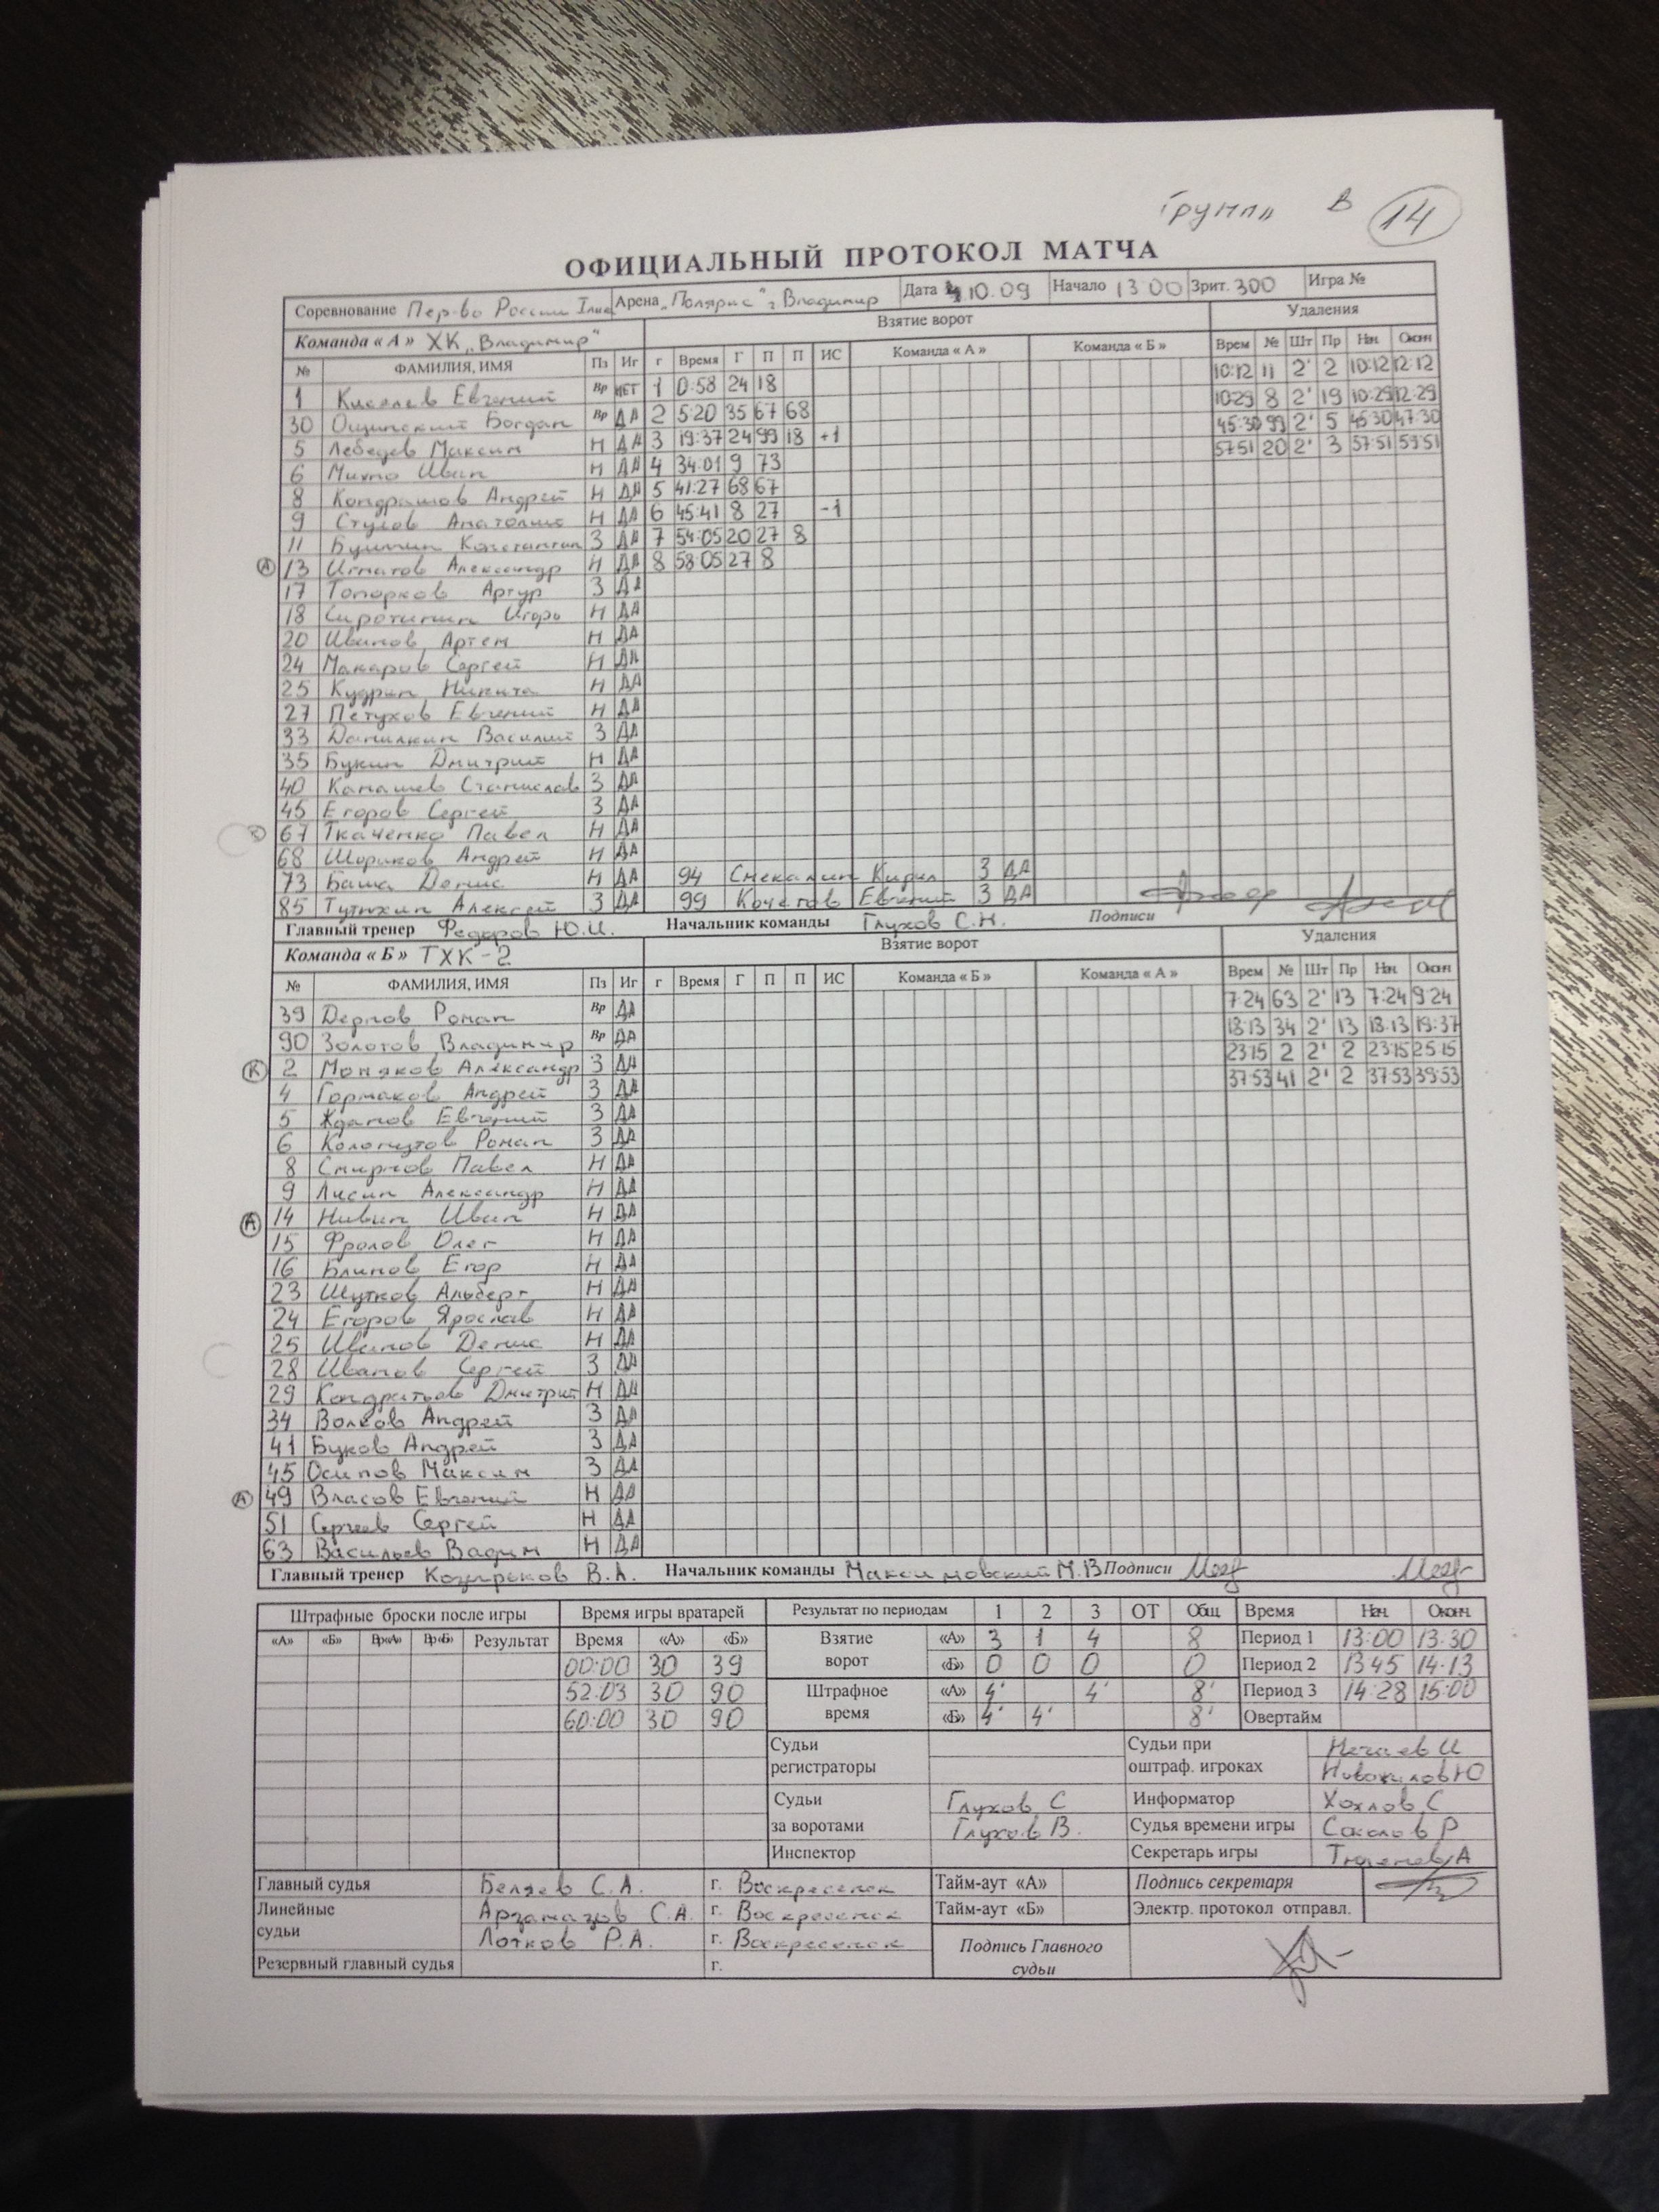 Группа В 14
ОФИЦИАЛЬНЫЙ ПРОТОКОЛ МАТЧА
Соревнование Пер-во России Арена "Полярис" г. Владимир Дата 10.09 Начало 13 00 Зрит. 300 Игра №
Команда « А » ХК "Владимир" Взятие ворот Удаления
№ ФАМИЛИЯ, ИМЯ Пз Иг г Время Г П П ИС Команда « А » Команда « Б » Врем № Шт Пр Нач. Оконч
1 Киселев Евгений Вр НЕТ 1 0:58 24 18 10:12 11 2' 2 10:12 12:12
30 Ощинский Богдан Вр ДА 2 5:20 35 67 68 10:29 8 2' 19 10:29 12:29
5 Лебедев Максим Н ДА 3 19:37 24 99 18 +1 45:30 99 2' 5 45:30 47:30
6 Михно Иван Н ДА 4 34:01 9 73 57:51 20 2' 3 57:51 59:51
8 Кондрашов Андрей Н ДА 5 41:27 68 67
9 Стулов Анатолий Н ДА 6 45:41 8 27 -1
11 Константин З ДА 7 54:05 20 27 8
А 13 Игнатов Александр Н ДА 8 58:05 27 8
17 Топорков Артур З ДА
18 Сиротинин Игорь Н ДА
20 Иванов Артем Н ДА
24 Макаров Сергей Н ДА
25 Кудрин Никита Н ДА
27 Петухов Евгений Н ДА
33 Данилкин Василий З ДА
35 Букин Дмитрий Н ДА
40 Канашев Станислав З ДА
45 Егоров Сергей З ДА
67 Ткаченко Павел Н ДА
68 Шориков Андрей Н ДА
73 Баша Денис Н ДА 94 Смекалин Кирил З ДА
85 Тутыхин Алексей З ДА 99 Кочетов Евгений З ДА
Главный тренер Федоров Ю.И. Начальник команды Глухов С.Н. Подписи
Команда « Б » ТХК-2 Взятие ворот Удаления
№ ФАМИЛИЯ, ИМЯ Пз Иг г Время Г П П ИС Команда « Б » Команда « А » Врем № Шт Пр Нач. Оконч
39 Дернов Роман Вр ДА 7:24 63 2' 13 7:24 9:24
90 Золотов Владимир Вр ДА 18:13 34 2' 13 18:13 19:37
К 2 Моняков Александр З ДА 23:15 2 2' 2 23:15 25:15
4 Гормаков Андрей З ДА 37:53 41 2' 2 37:53 39:53
5 Жданов Евгений З ДА
6 Колопутов Роман З ДА
8 Смирнов Павел Н ДА
9 Лисин Александр Н ДА
А 14 Нивин Иван Н ДА
15 Фролов Олег Н ДА
16 Блинов Егор Н ДА
23 Шутков Альберт Н ДА
24 Егоров Ярослав Н ДА
25 Иванов Денис Н ДА
28 Иванов Сергей З ДА
29 Кондратьов Дмитрий Н ДА
34 Волков Андрей З ДА
41 Буков Андрей З ДА
45 Осипов Максим З ДА
А 49 Власов Евгений Н ДА
51 Сергеев Сергей Н ДА
63 Васильев Вадим Н ДА
Главный тренер Козырьков В.А. Начальник команды Максимовский М.В Подписи
Штрафные броски после игры Время игры вратарей Результат по периодам 1 2 3 ОТ Общ Время Нач. Оконч.
«А» «Б» Вр«А» Вр«Б» Результат Время «А» «Б» Взятие ворот «А» 3 1 4 8 Период 1 13:00 13:30
00:00 30 39 «Б» 0 0 0 0 Период 2 13 45 14:13
52:03 30 90 Штрафное время «А» 4' 4' 8' Период 3 14:28 15:00
60:00 30 90 «Б» 4' 4' 8' Овертайм
Судьи регистраторы Судьи при оштраф. игроках Нечаев И
Новожилов Ю
Судьи за воротами Глухов С Информатор Хохлов С
Глухов В. Судья времени игры Соколов Р
Инспектор Секретарь игры Тюленев А
Главный судья Беляев С.А. г. Воскресенск Тайм-аут «А» Подпись секретаря
Линейные судьи Арзамазов С.А. г. Воскресенск Тайм-аут «Б» Электр. протокол отправл.
Лотков Р.А. г. Воскресенск Подпись Главного судьи
Резервный главный судья г.